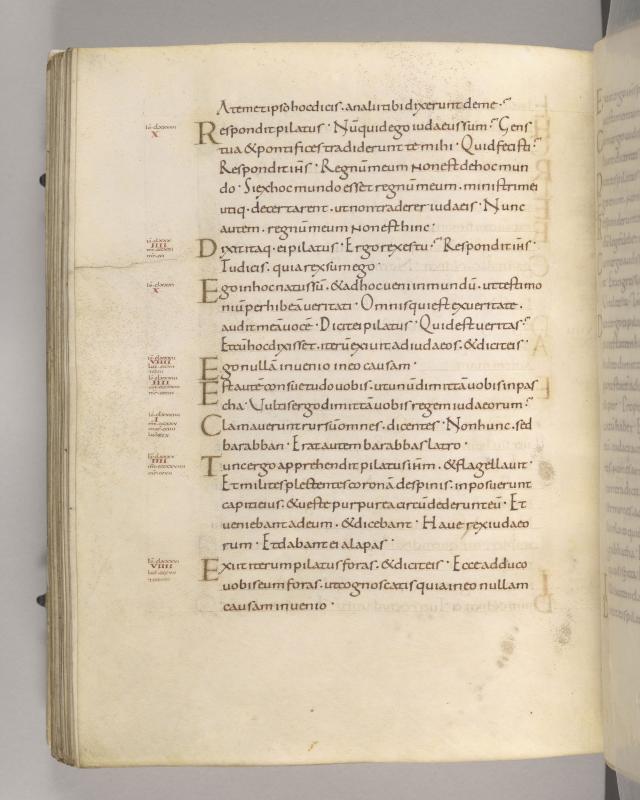 A temetipso hoc dicis. an alii tibi dixerunt de me.
Respondit pilatus. Nũquid ego iudaeus sum. Gens
tua & pontifices tradiderunt te mihi. Quid fecisti.
Respondit ihs. Regnũ meum non est de hoc mun
do. Si ex hoc mundo esset regnũ meum. ministri mei
utiq. decertarent. ut non traderer iudaeis. Nunc
autem. regnũ meum non est hinc.
Dixit itaq. ei pilatus. Ergo rex es tu. Respondit ihs.
Tu dicis. quia rex sum ego.
Ego in hoc natus sũ. & ad hoc veni in mundũ. ut testimo
niũ perhibeã veritati. Omnis qui est ex veritate.
audit meã vocẽ. Dicit ei pilatus. Quid est veritas.
Et cũ hoc dixisset. iterũ exivit ad iudaeos. & dicit eis.
Ego nullã invenio in eo causam.
Est autẽ consuetudo vobis. ut unũ dimittã vobis in pas
cha. Vultis ergo dimittã vobis regem iudaeorum.
Clamaverunt rursũ omnes. dicentes. Non hunc. sed
barabban. Erat autem barabbas latro.
Tunc ergo apprehendit pilatus ihm. & flagellavit.
Et milites plectentes coronã de spinis. inposuerunt
capiti eius. & veste purpurea circũdederunt eũ. Et
veniebant ad eum. & dicebant. Haue rex iudaeo
rum. Et dabant ei alapas.
Exiit iterum pilatus foras. & dicit eis. Ecce adduco
vobis eum foras. ut cognoscatis quia in eo nullam
causam invenio.
X
IIII
X
VIIII
IIII
I
IIII
VIIII